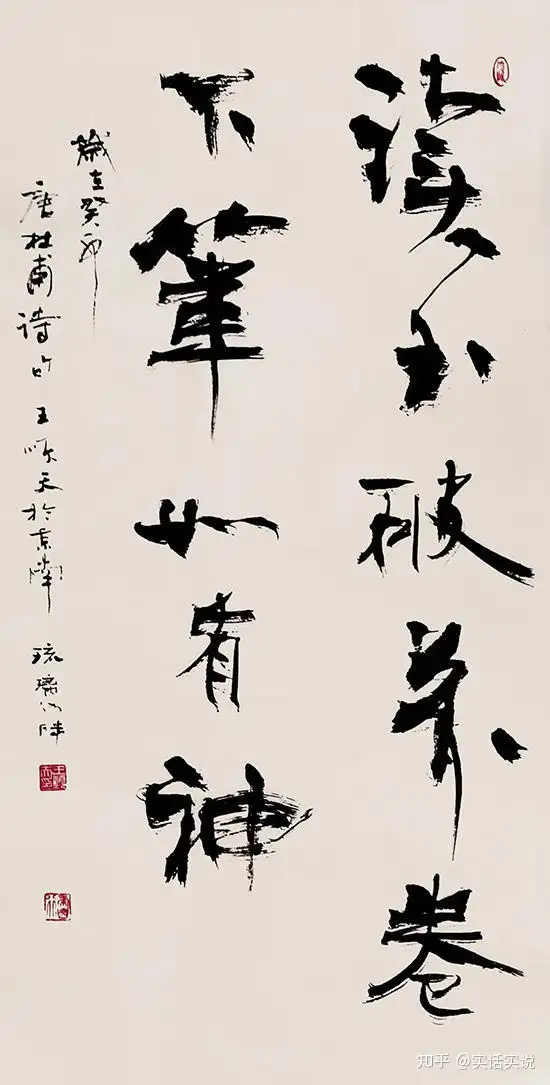 读书破萬卷
下筆如有神
歲在癸卯
唐杜甫诗句 王顺天於京南 琉璃河畔
知乎 @实话实说